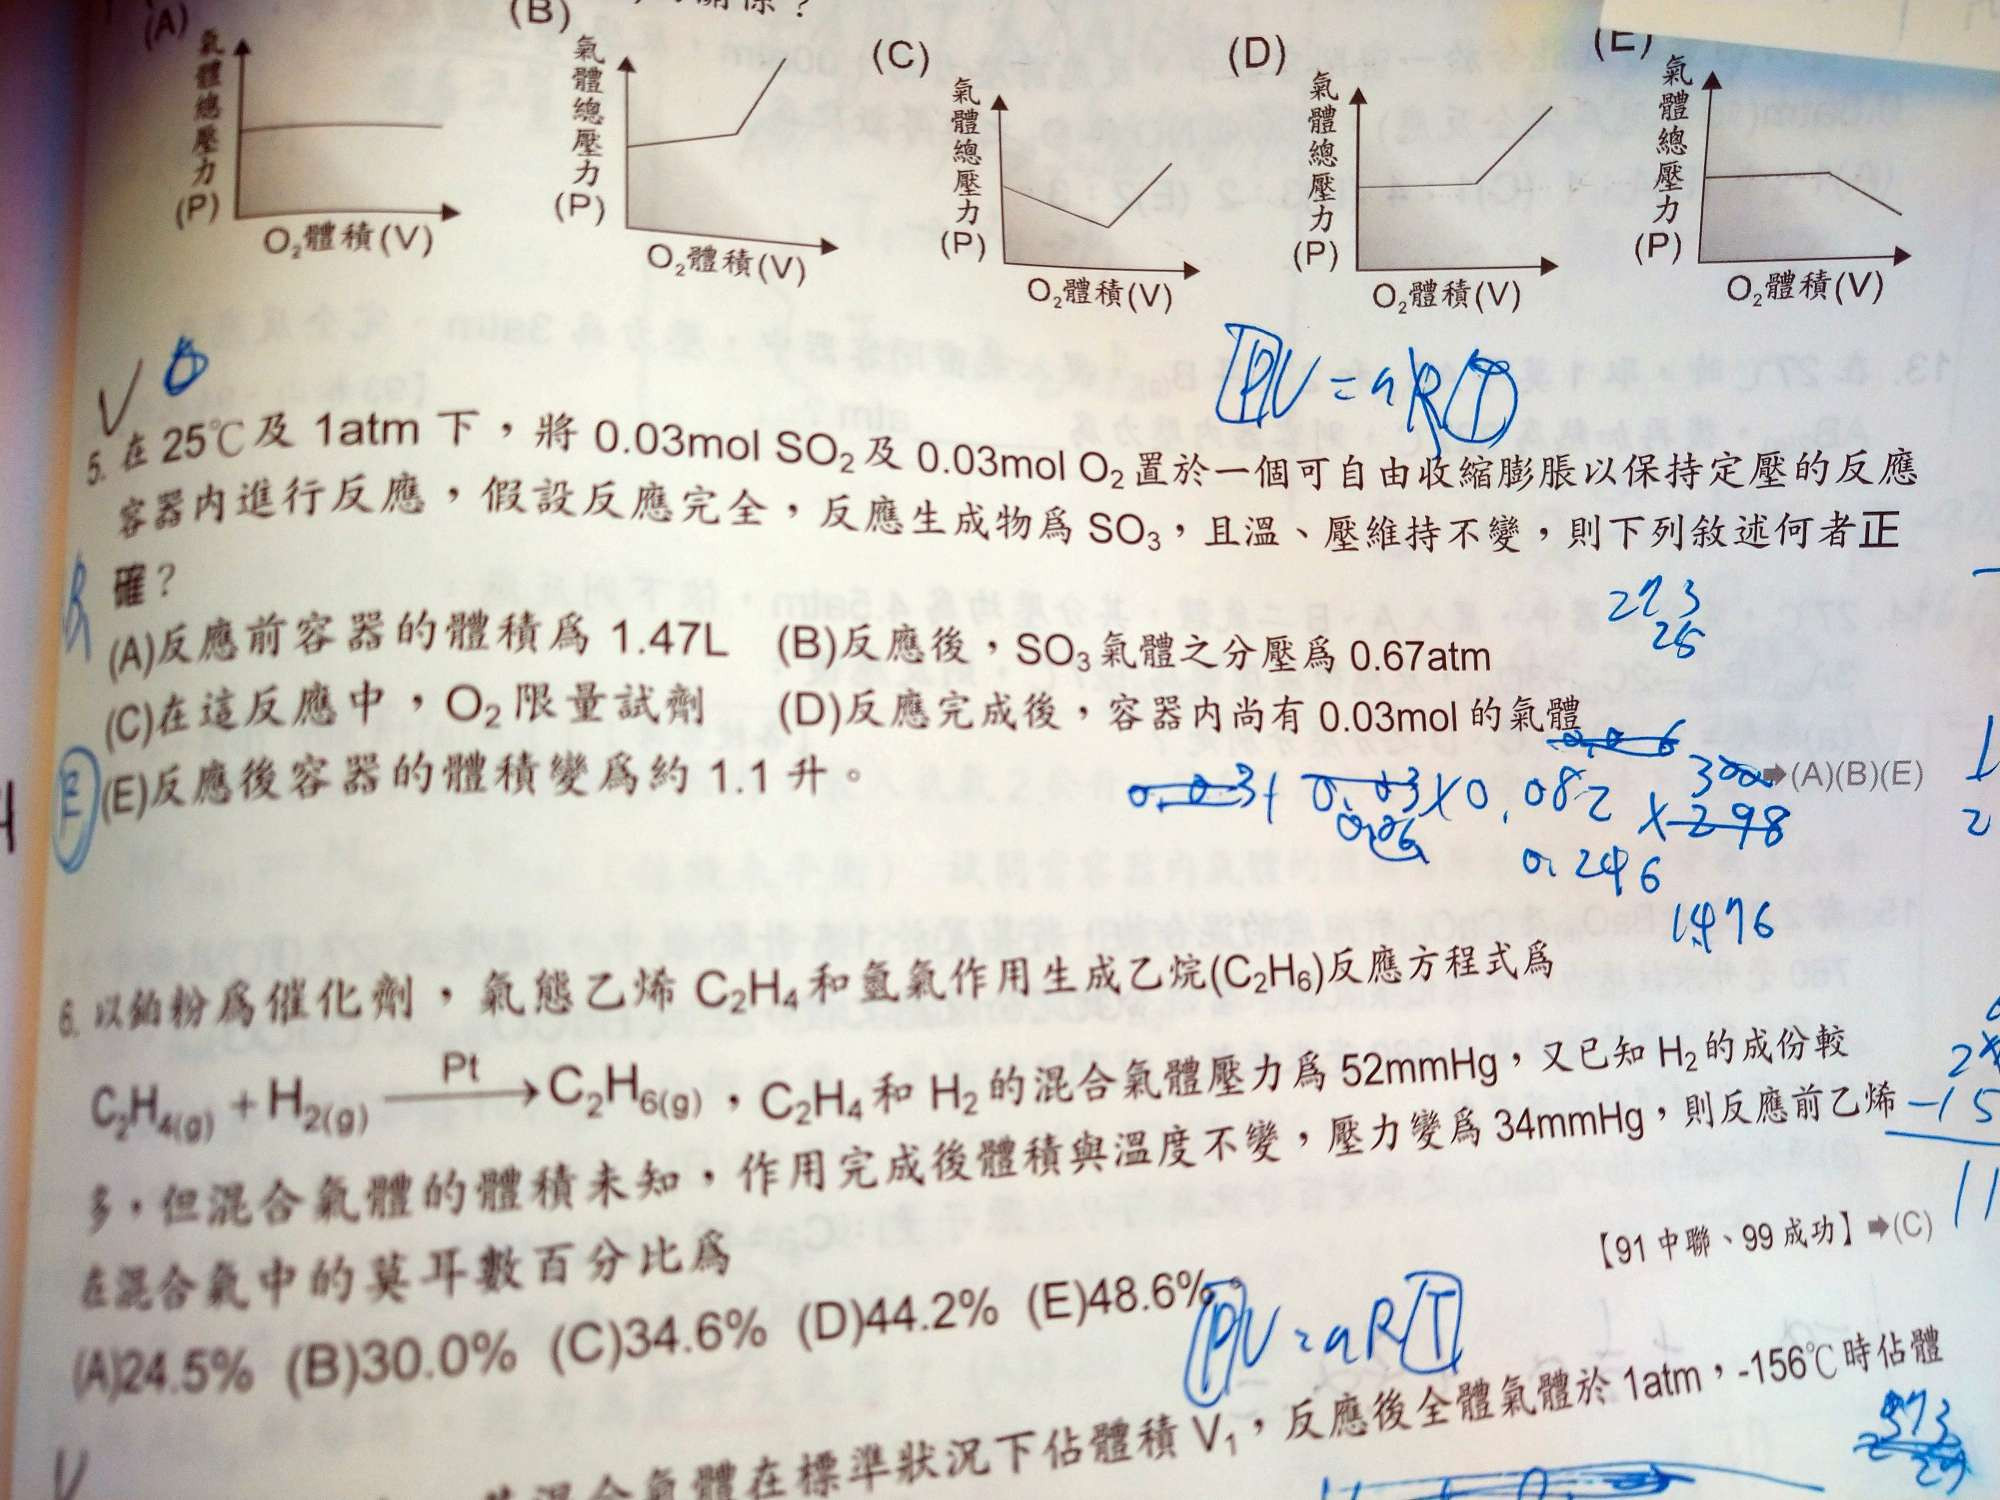 關係？
(A) (B) (C) (D) (E)
氣體總壓力(P) 氣體總壓力(P) 氣體總壓力(P) 氣體總壓力(P) 氣體總壓力(P)
O₂體積(V) O₂體積(V) O₂體積(V) O₂體積(V) O₂體積(V)
PV=nRT
5. 在 25℃及 1atm 下，將 0.03mol SO₂及 0.03mol O₂置於一個可自由收縮膨脹以保持定壓的反應
容器內進行反應，假設反應完全，反應生成物爲 SO₃，且溫、壓維持不變，則下列敘述何者正
確？
273
25
(A)反應前容器的體積爲 1.47L (B)反應後，SO₃氣體之分壓爲 0.67atm
(C)在這反應中，O₂限量試劑 (D)反應完成後，容器內尚有 0.03mol 的氣體
E (E)反應後容器的體積變爲約 1.1 升。
➡(A)(B)(E)
0.03+0.03×0.082×298
0.06
300
0.246
1476
6. 以鉑粉爲催化劑，氣態乙烯 C₂H₄和氫氣作用生成乙烷(C₂H₆)反應方程式爲
C₂H₄(g) + H₂(g) —Pt→ C₂H₆(g)，C₂H₄和 H₂的混合氣體壓力爲 52mmHg，又已知 H₂的成份較
多，但混合氣體的體積未知，作用完成後體積與溫度不變，壓力變爲 34mmHg，則反應前乙烯
在混合氣中的莫耳數百分比爲
【91 中聯、99 成功】➡(C)
(A)24.5% (B)30.0% (C)34.6% (D)44.2% (E)48.6%。
PV=nRT
混合氣體在標準狀況下佔體積 V₁，反應後全體氣體於 1atm，-156℃時佔體